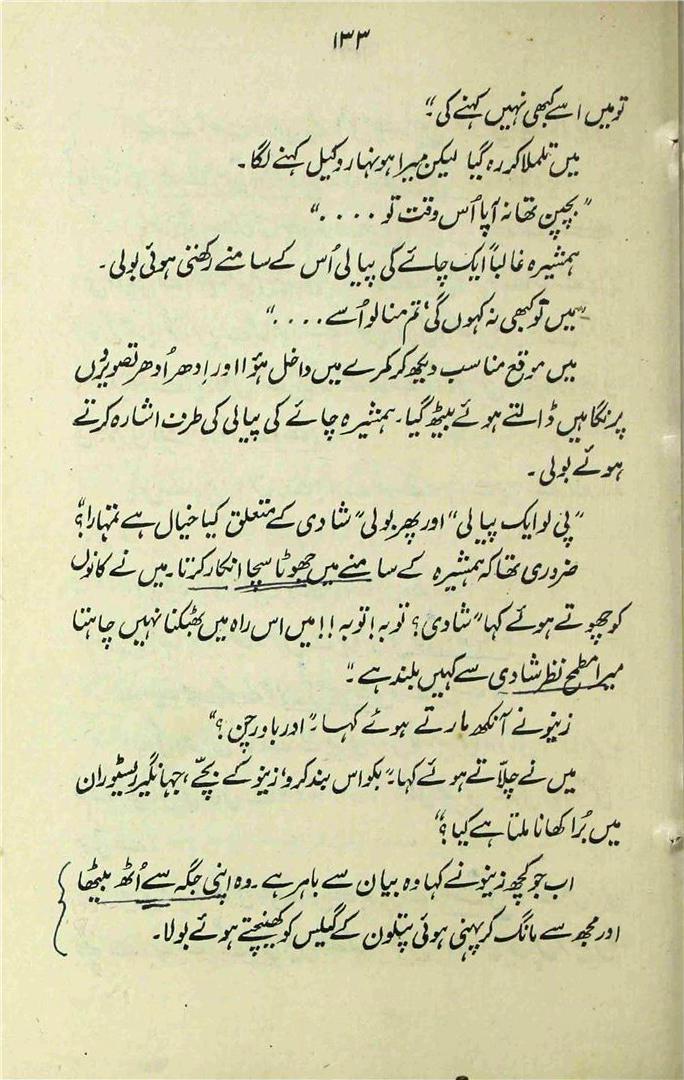 ۱۳۳
تو میں اسے کبھی نہیں کہنے کی۔"
میں تلملا کر رہ گیا لیکن میرا ہونہار وکیل کہنے لگا۔
"بچپن تھا نہ آپا اُس وقت تو ...."
ہمشیرہ غالباً ایک چائے کی پیالی اُس کے سامنے رکھتی ہوئی بولی۔
"میں تو کبھی نہ کہوں گی، تم منا لو اُسے ...."
میں موقع مناسب دیکھ کر کمرے میں داخل ہؤا اور اِدھر اُدھر تصویروں
پر نگاہیں ڈالتے ہوئے بیٹھ گیا۔ ہمشیرہ چائے کی پیالی کی طرف اشارہ کرتے
ہوئے بولی۔
"پی لو ایک پیالی" اور پھر بولی "شادی کے متعلق کیا خیال ہے تمہارا؟"
ضروری تھا کہ ہمشیرہ کے سامنے میں جھوٹا سچا انکار کرتا۔ میں نے کانوں
کو چھوتے ہوئے کہا "شادی؟ توبہ! توبہ!! میں اس راہ میں بھٹکنا نہیں چاہتا
میرا مطمح نظر شادی سے کہیں بلند ہے۔"
زینو نے آنکھ مارتے ہوئے کہا۔ "اور باورچن؟"
میں نے چلّاتے ہوئے کہا۔ "بکواس بند کرو، زینو کے بچّے، جہانگیر ریسٹوران
میں بُرا کھانا ملتا ہے کیا؟"
اب جو کچھ زینو نے کہا وہ بیان سے باہر ہے۔ وہ اپنی جگہ سے اُٹھ بیٹھا
اور مجھ سے مانگ کر پہنی ہوئی پتلون کے گیلس کو کھینچتے ہوئے بولا۔